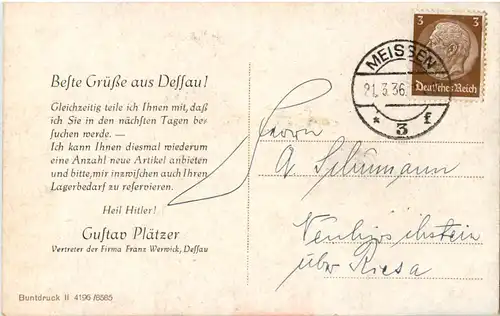 3 3
Deutsches Reich
MEISSEN
21.3.36.
* 3 f
Beste Grüße aus Dessau!
Gleichzeitig teile ich Ihnen mit, daß
ich Sie in den nächsten Tagen be-
suchen werde. —
Ich kann Ihnen diesmal wiederum
eine Anzahl neue Artikel anbieten
und bitte, mir inzwischen auch Ihren
Lagerbedarf zu reservieren.
Heil Hitler!
Gustav Plätzer
Vertreter der Firma Franz Werwick, Dessau
Buntdruck II 4196/8585
Herrn
A Schumann
Neuhirschstein
über Riesa